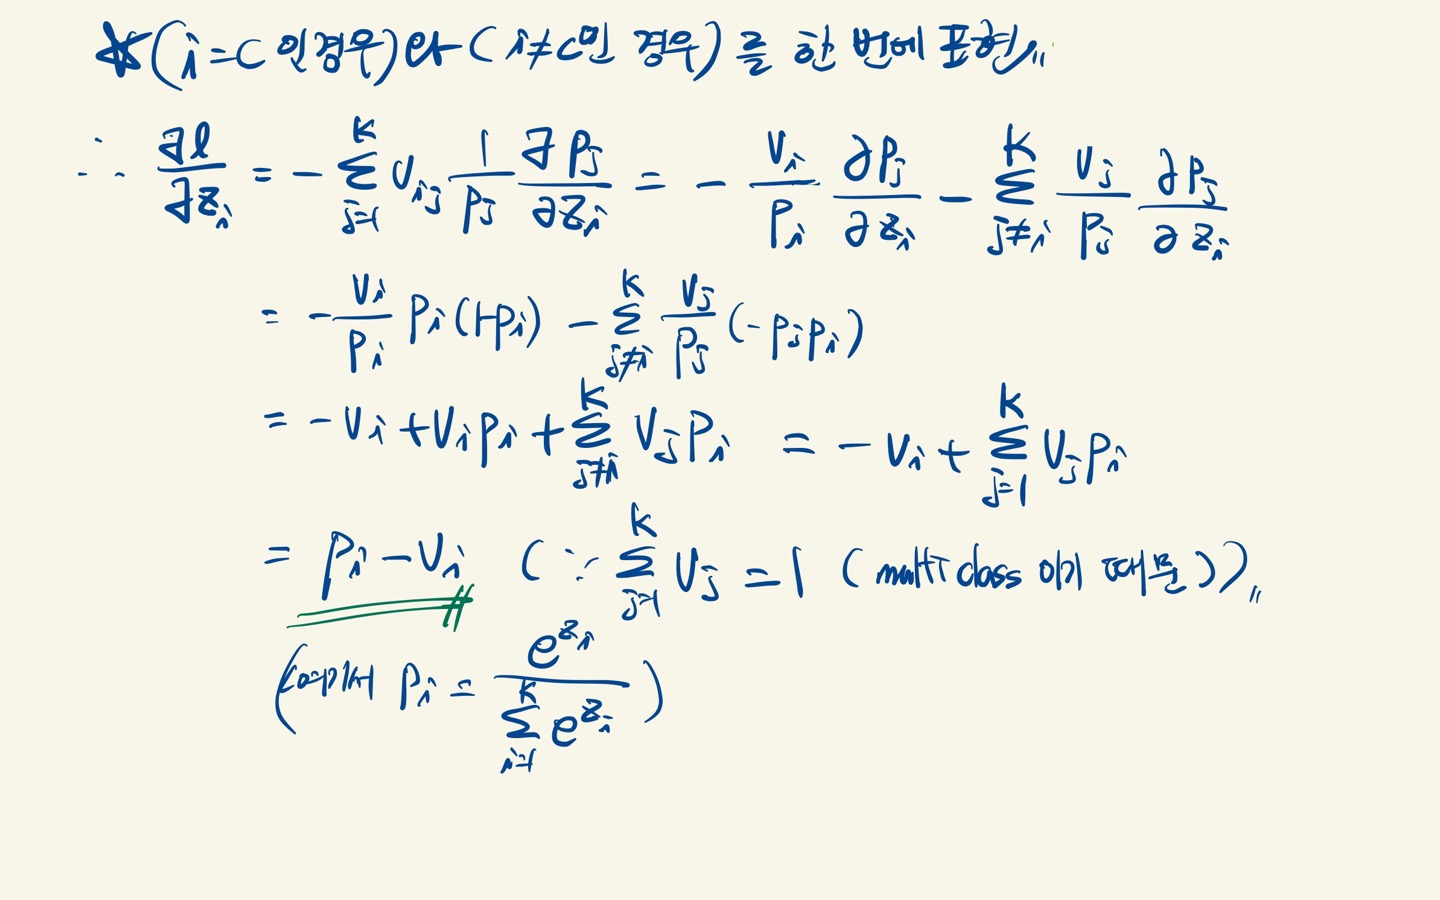 ★(i=c 인 경우)와 (i≠c인 경우)를 한 번에 표현〃
∴ ∂l/∂z_i = - Σ_{j=1}^{K} v_{ij} 1/p_j ∂p_j/∂z_i = - v_i/p_i ∂p_j/∂z_i - Σ_{j≠i}^{K} v_j/p_j ∂p_j/∂z_i
= - v_i/p_i p_i(1-p_i) - Σ_{j≠i}^{K} v_j/p_j (-p_j p_i)
= -v_i + v_i p_i + Σ_{j≠i}^{K} v_j p_i = -v_i + Σ_{j=1}^{K} v_j p_i
= p_i - v_i (∵ Σ_{j=1}^{K} v_j = 1 (multi class 이기 때문))〃
(여기서 p_i = e^{z_i} / Σ_{i=1}^{K} e^{z_i})